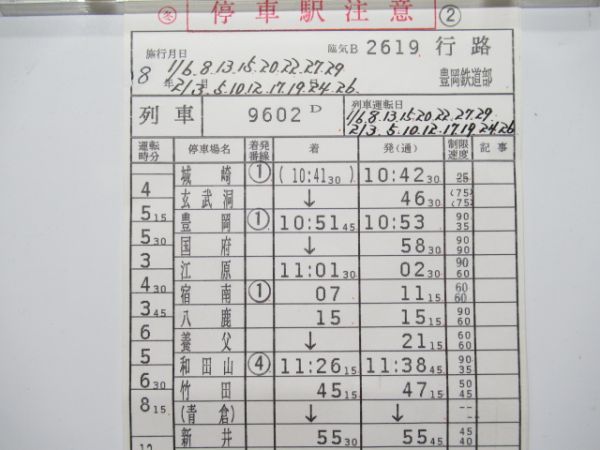 冬 停車駅注意 ②
施行月日 臨気B 2619 行路
8年 1/6.8.13.15.20.22.27.29
2/3.5.10.12.17.19.24.26. 豊岡鉄道部
列車 9602D 列車運転日
1/6.8.13.15.20.22.27.29
2/3.5.10.12.17.19.24.26
運転時分 停車場名 着発番線 着 発(通) 制限速度 記事
城崎 ① (10:41 30) 10:42 30 25
4
玄武洞 ↓ 46 30 (75) (75)
5 15
豊岡 ① 10:51 45 10:53 90 35
5 30
国府 ↓ 58 30 90 90
3
江原 11:01 30 02 30 90 60
4 30
宿南 ① 07 11 15 60 60
3 45
八鹿 15 15 15 90 60
6
養父 ↓ 21 15 60 60
5
和田山 ④ 11:26 15 11:38 45 90 35
6 30
竹田 45 15 47 15 50 45
8 15
(青倉) ↓ ↓ -- --
新井 55 30 55 45 45 40